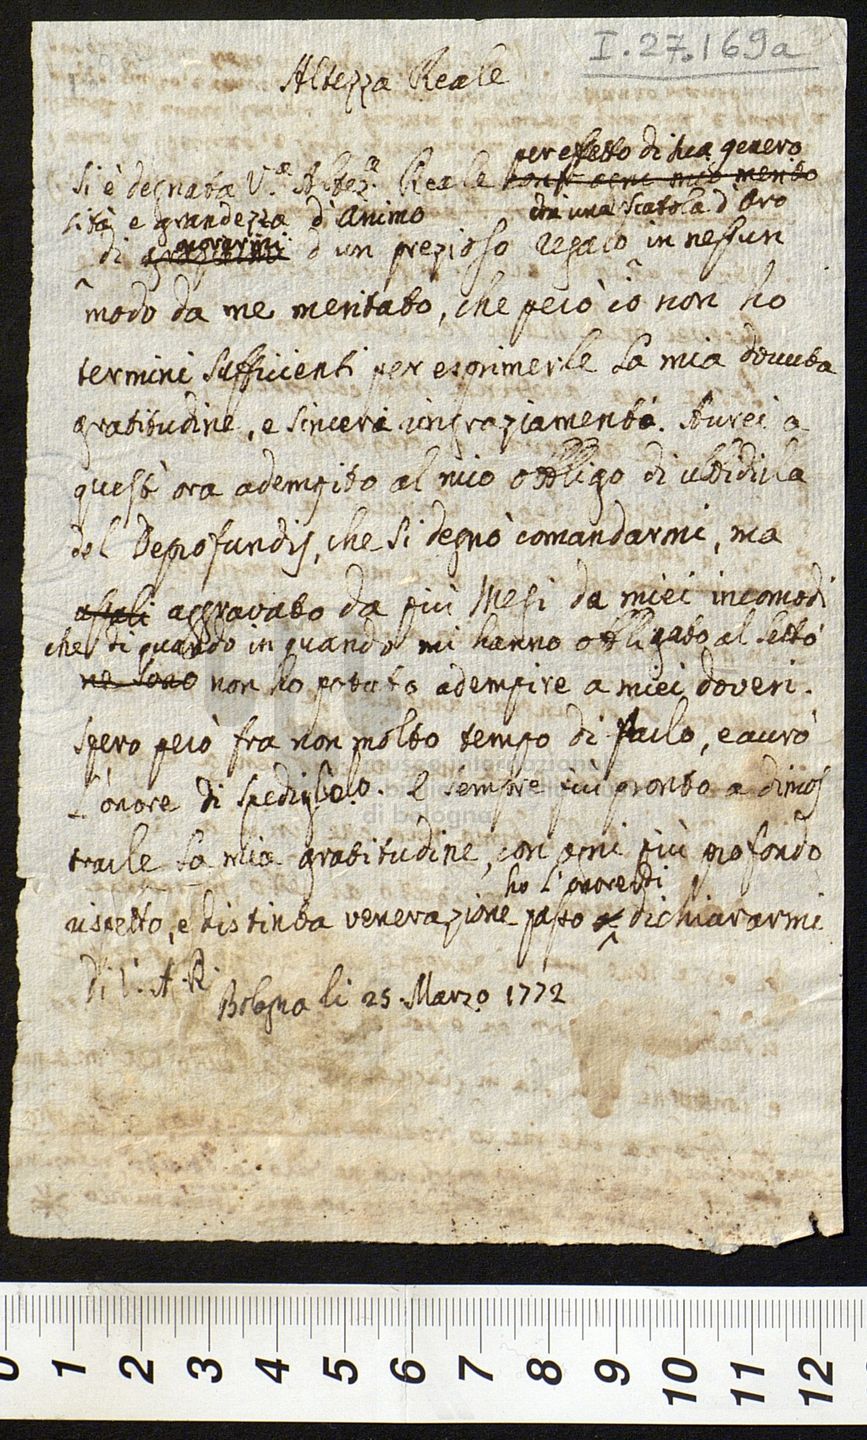 I.27.169a
Altezza Reale
per effetto di sua genero
Si è degnata V.ª Altez.ª Reale ogni mio merito
sità e grandezza d'Animo
con una Scatola d'Oro
onorarmi
di d'un prezioso regalo in nessun
modo da me meritato, che però io non ho
termini sufficienti per esprimerle la mia dovuta
gratitudine, e sincero ringraziamento. Avrei a
quest'ora adempito al mio obbligo di ubbidirla
del Deprofundis, che si degnò comandarmi, ma
aggravato da più Mesi da miei incomodi
che di quando in quando mi hanno obbligato al letto
ne sono non ho potuto adempire a miei doveri.
spero però fra non molto tempo di farlo, e avrò
l'onore di spedirlelo. E sempre più pronto a dimos
trarle la mia gratitudine, con ogni più profondo
ho l'onore di
rispetto, e distinta venerazione passo dichiararmi
di V. A. R.
Bologna li 25. Marzo 1772
museo internazionale
di bologna
0 1 2 3 4 5 6 7 8 9 10 11 12